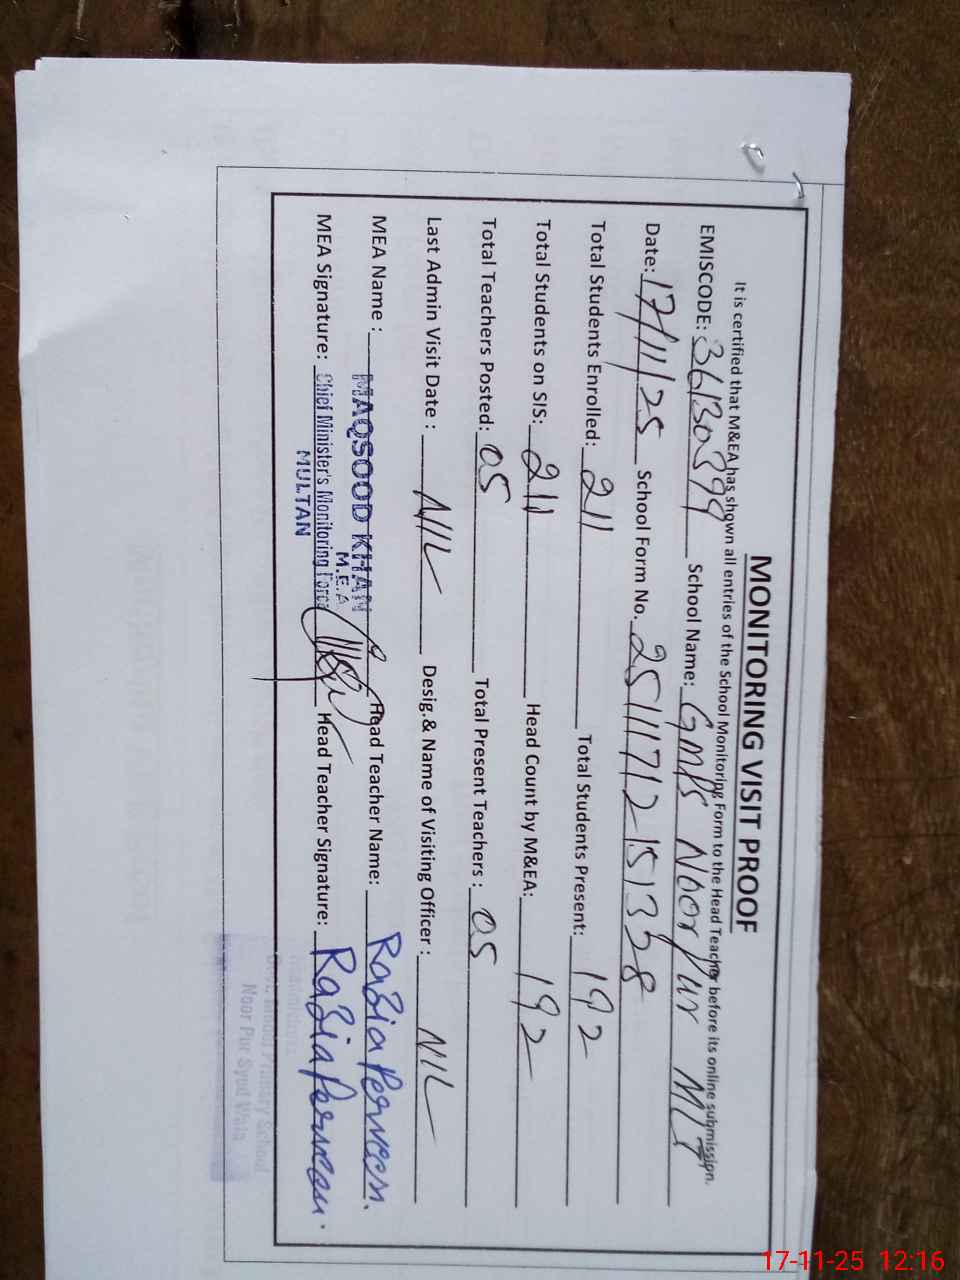 MONITORING VISIT PROOF
It is certified that M&EA has shown all entries of the School Monitoring Form to the Head Teacher before its online submission.
EMISCODE: 36130399 School Name: GMPS Noor Pur
Date: 17/11/25 School Form No. 25111712151338
Total Students Enrolled: 211 Total Students Present: 192
Total Students on SIS: 211 Head Count by M&EA: 192
Total Teachers Posted: 05 Total Present Teachers : 05
Last Admin Visit Date : NIL Desig.& Name of Visiting Officer : NIL
MEA Name : MAQSOOD KHAN Head Teacher Name: Razia Perveen.
M.E.A
MEA Signature: Chief Minister's Monitoring Force Head Teacher Signature: Razia Perveen.
MULTAN
Govt. Model Primary School
Noor Pur Syed Wala
17-11-25 12:16